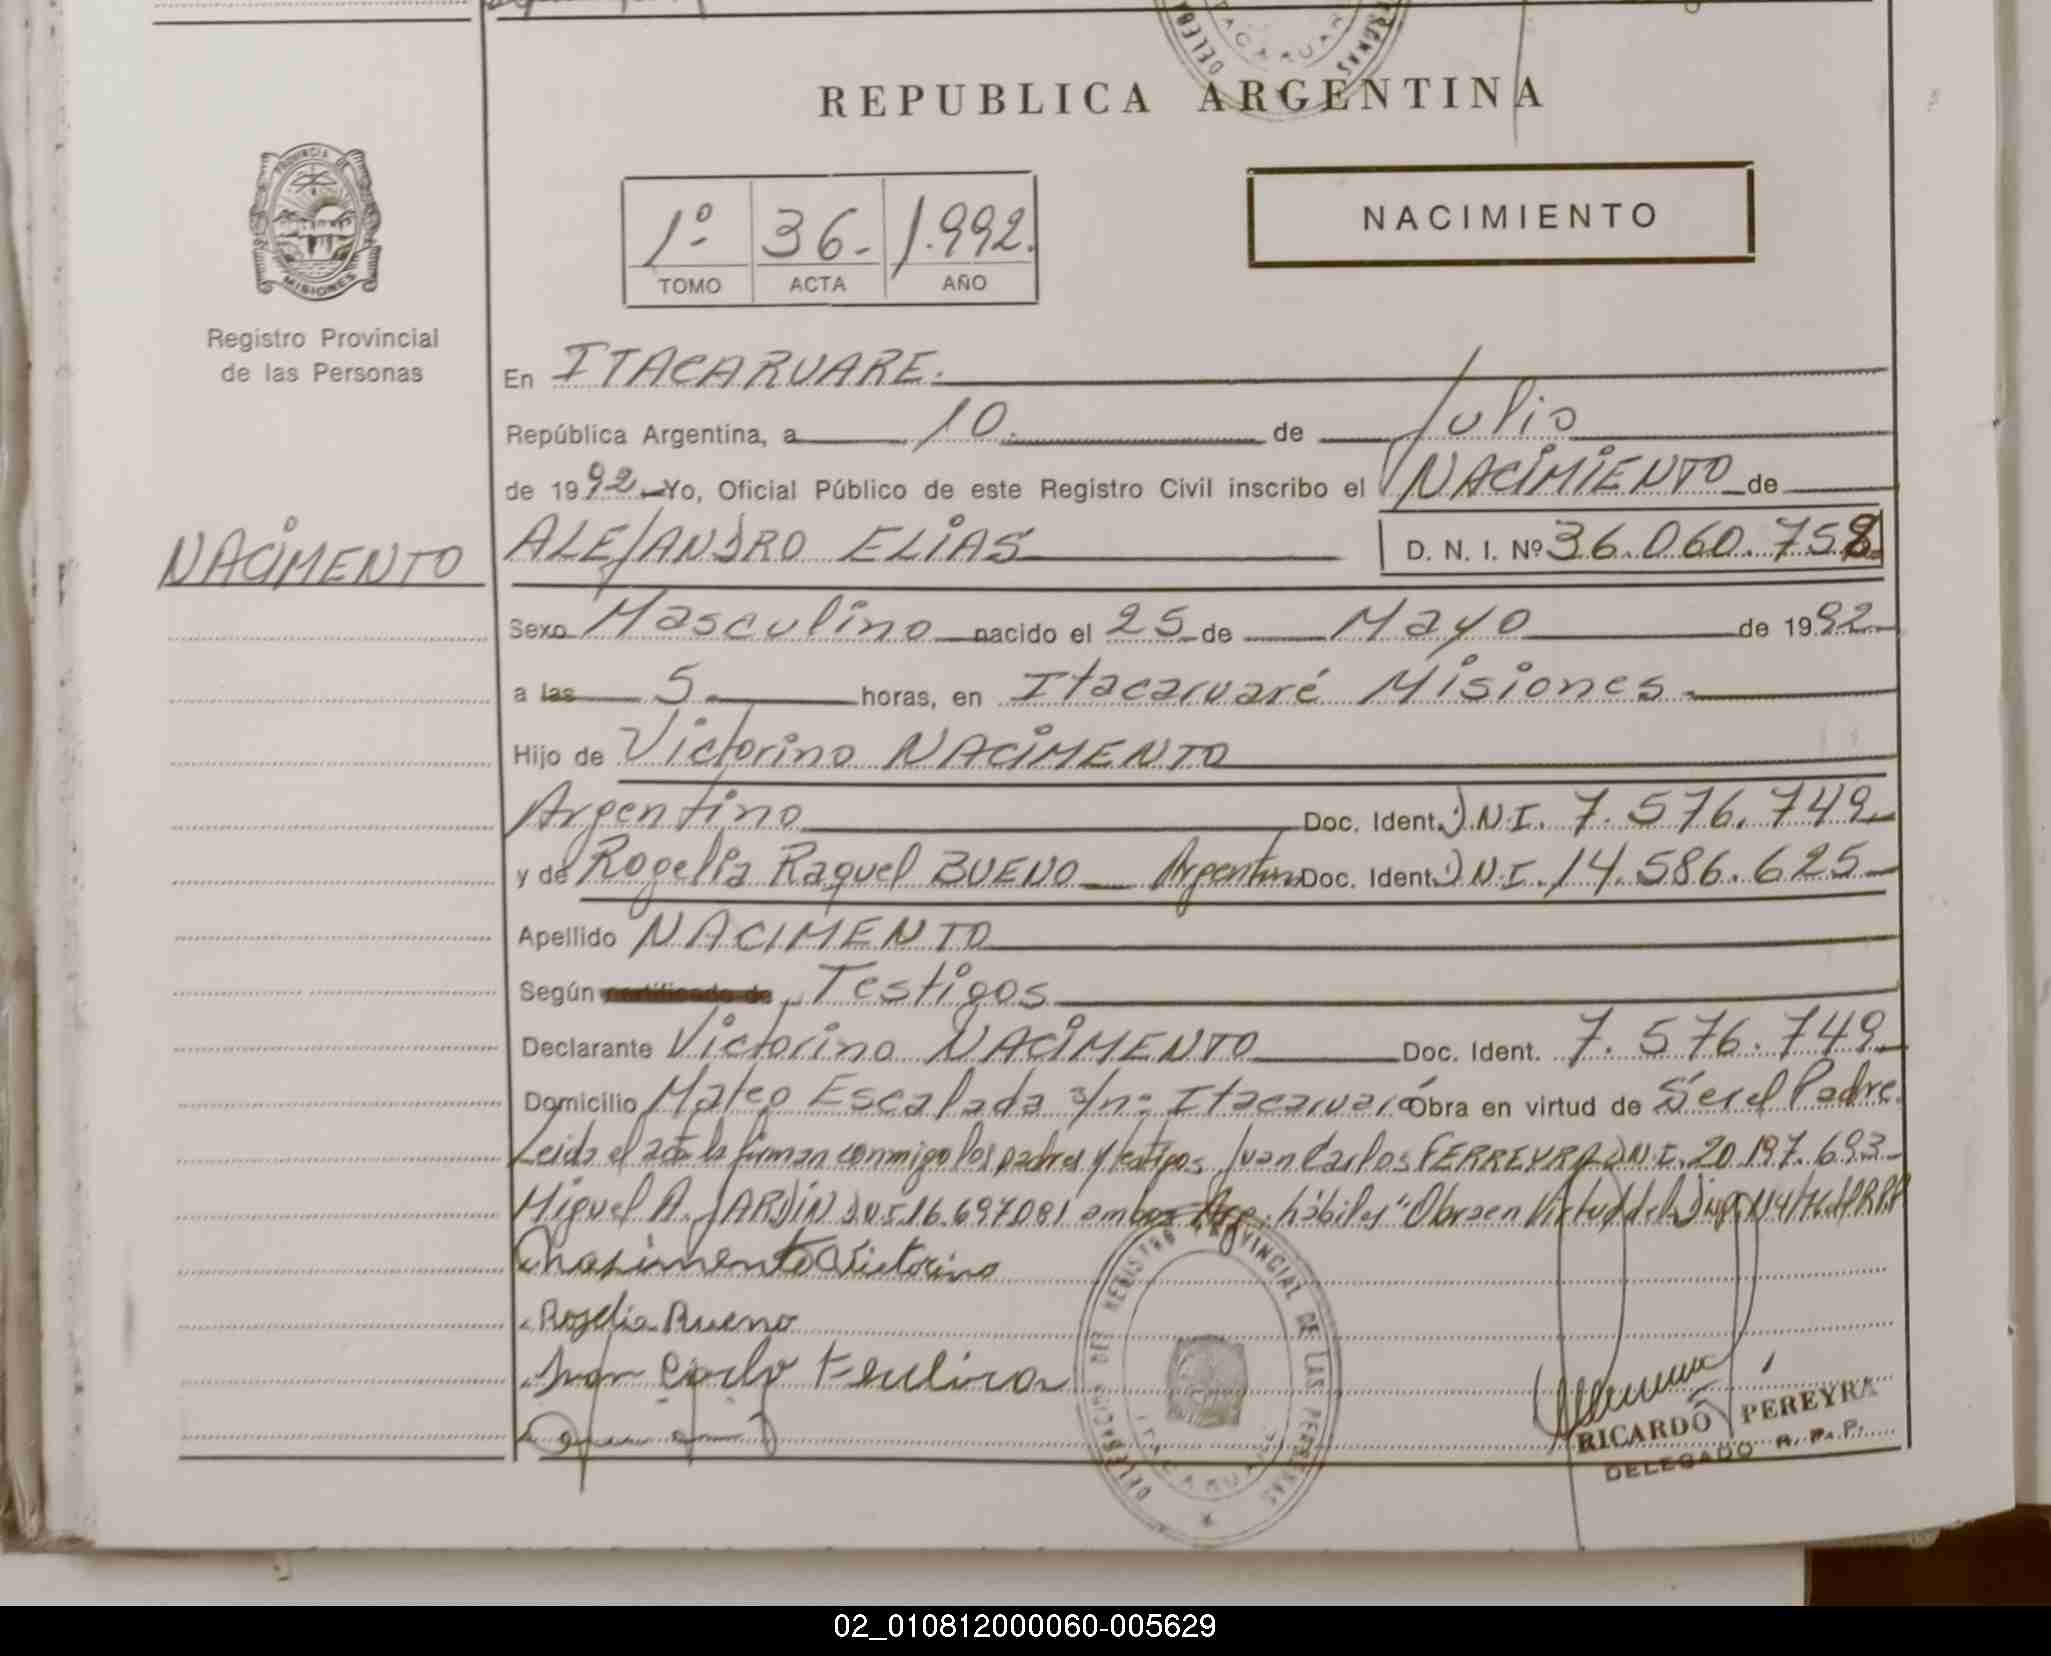 REPUBLICA ARGENTINA
PROVINCIA DE
MISIONES
Registro Provincial
de las Personas
1º 36- 1.992.
TOMO ACTA AÑO
NACIMIENTO
En ITACARUARE.
República Argentina, a 10 de Julio
de 1992 Yo, Oficial Público de este Registro Civil inscribo el NACIMIENTO de
NACIMENTO
ALEJANDRO ELIAS D. N. I. Nº 36.060.758
Sexo Masculino nacido el 25 de Mayo de 1992
a las 5 horas, en Itacaruaré Misiones.
Hijo de Victorino NACIMENTO
Argentino Doc. Ident. D.N.I. 7.576.749
y de Rogelia Raquel BUENO Argentina Doc. Ident. D.N.I. 14.586.625
Apellido NACIMENTO
Según certificado de Testigos
Declarante Victorino NACIMENTO Doc. Ident. 7.576.749
Domicilio Mateo Escalada s/n: Itacaruaré Obra en virtud de Ser el Padre.
Leida el acta la firman conmigo los padres y testigos Juan Carlos FERREYRA D.N.I. 20.197.693
Miguel A. JARDIN D.N.I. 16.697081 ambos Arg. hábiles "Obra en Virtud de la
Nasimento Victorino
Rogelia Bueno
Juan Carlo
DELEGACION DEL REGISTRO PROVINCIAL DE LAS PERSONAS
ITACARUARE
RICARDO PEREYRA
DELEGADO R. P. P.
02_010812000060-005629